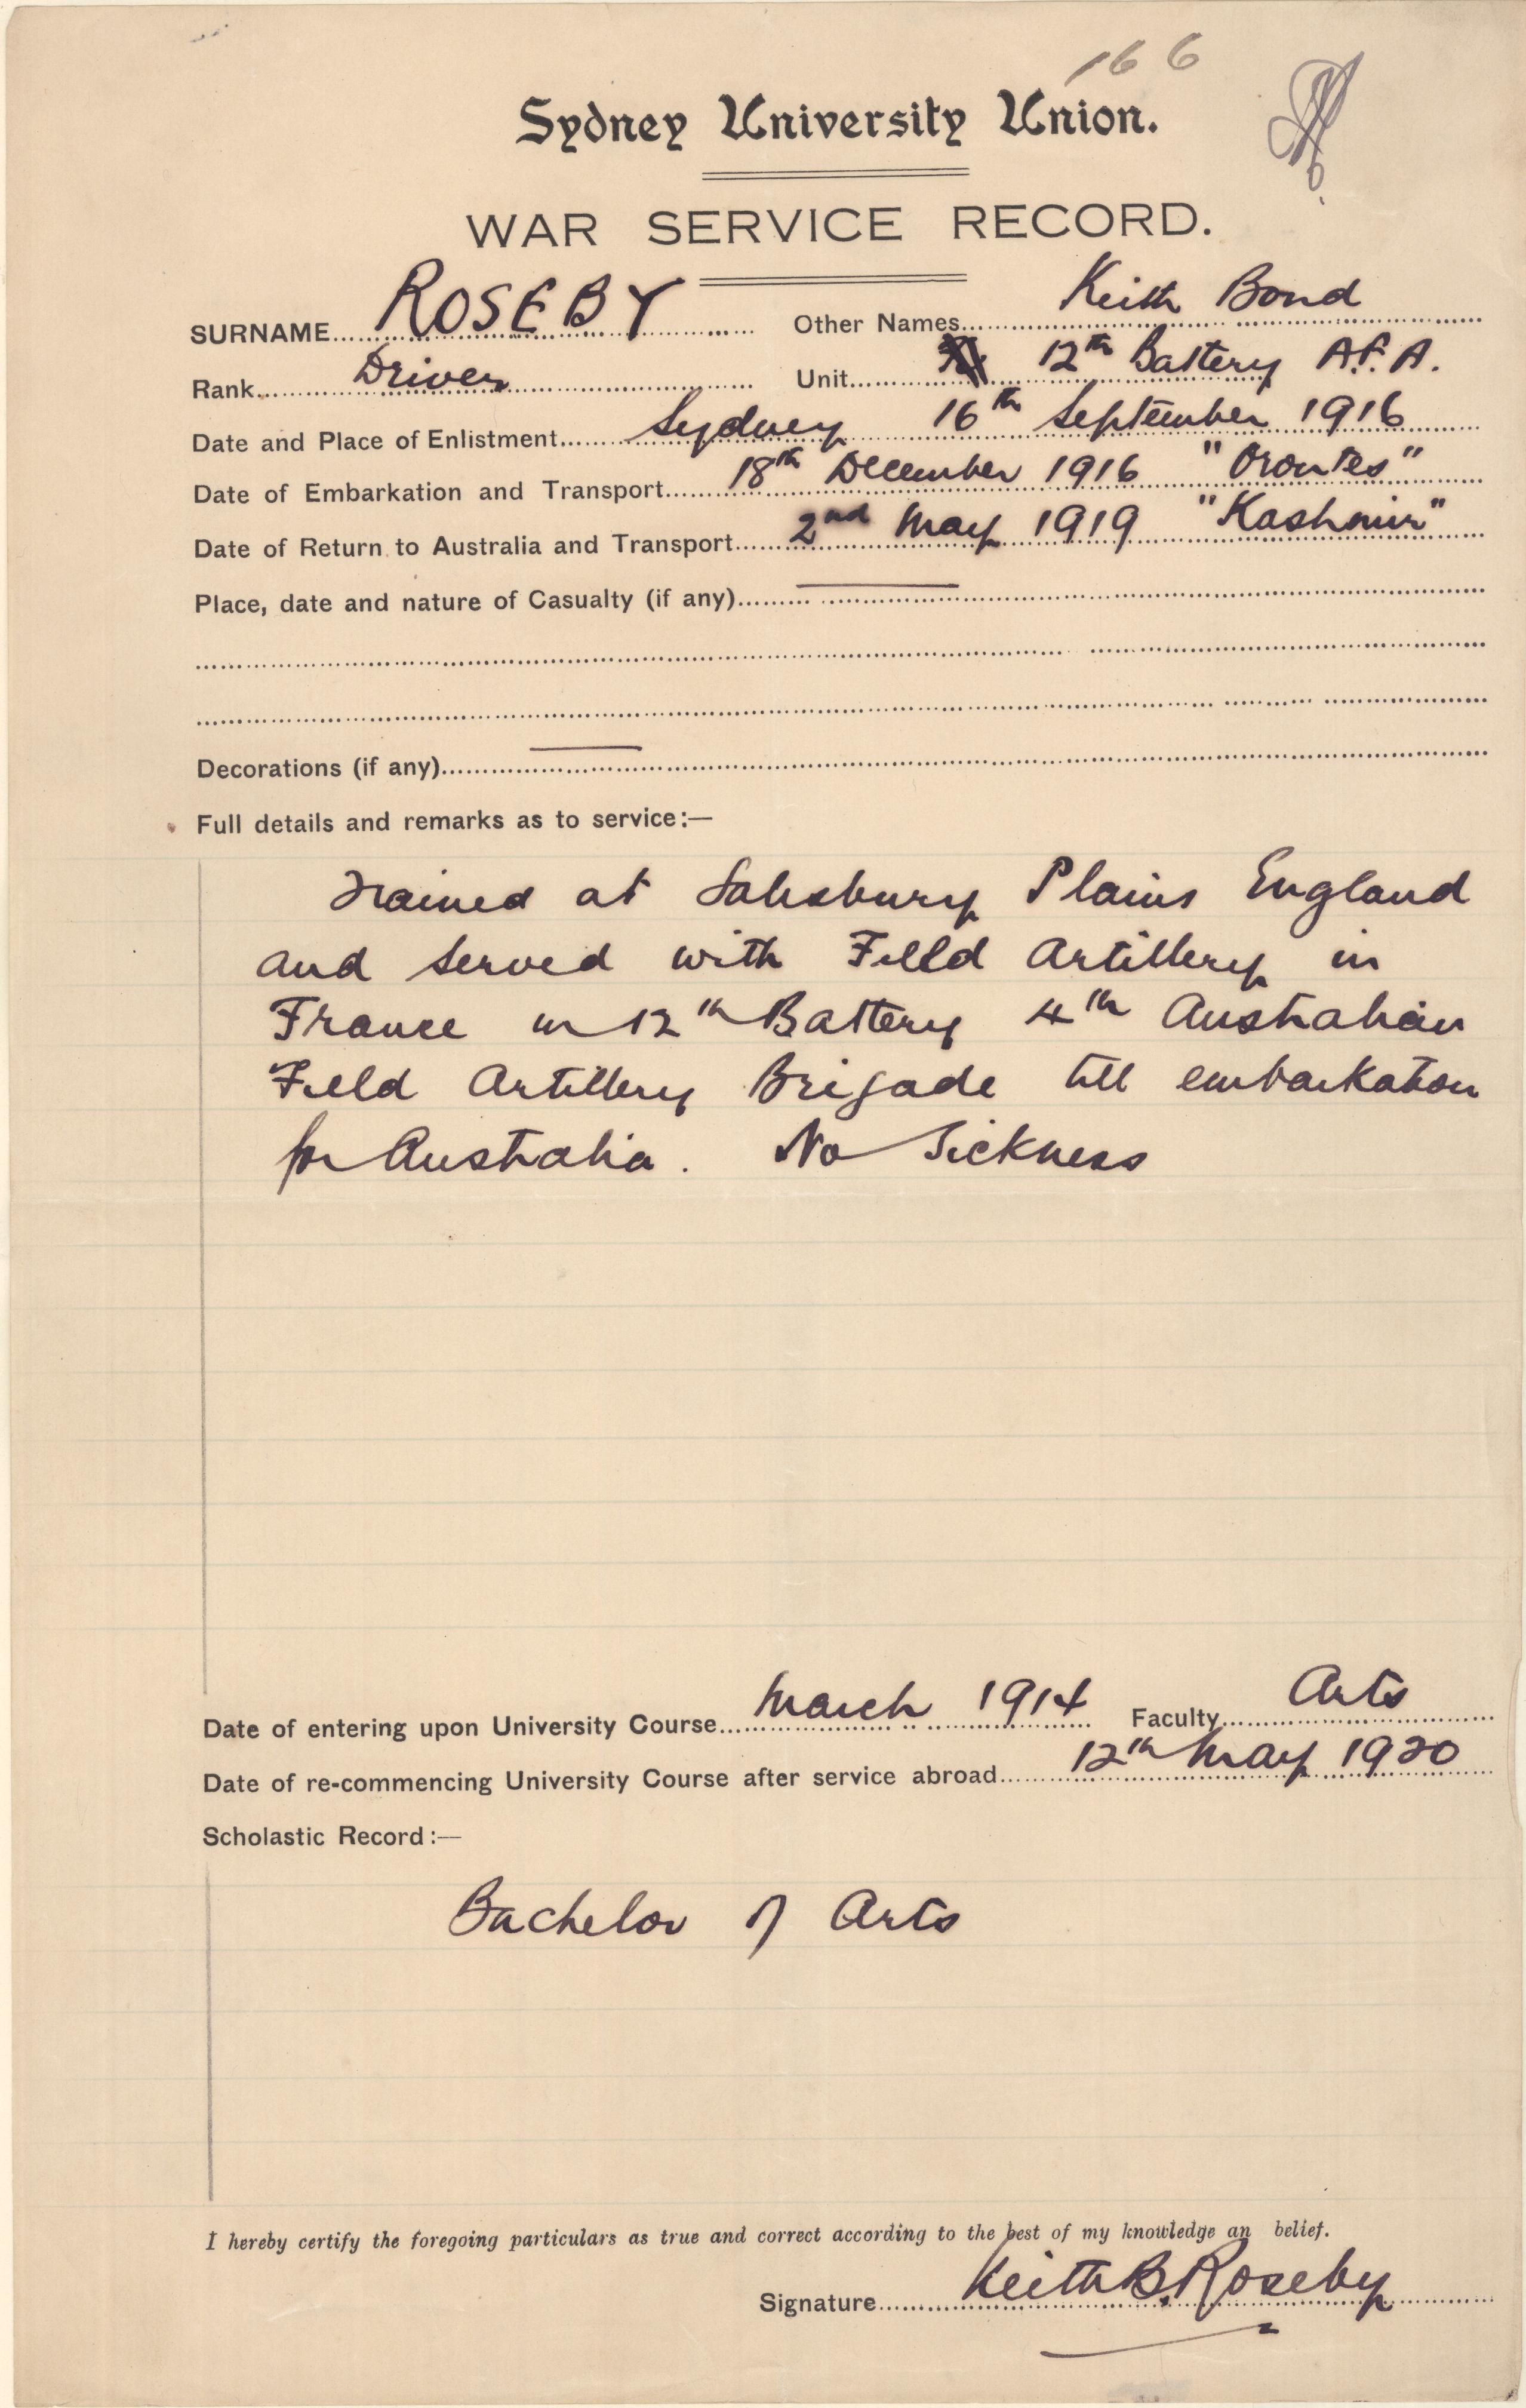 166
Sydney University Union.
WAR SERVICE RECORD.
SURNAME ROSEBY Other Names Keith Bond
Rank Driver Unit 12th Battery A.F.A.
Date and Place of Enlistment Sydney 16th September 1916
Date of Embarkation and Transport 18th December 1916 "Orontes"
Date of Return to Australia and Transport 2nd May 1919 "Kashmir"
Place, date and nature of Casualty (if any) —
Decorations (if any) —
Full details and remarks as to service:—
Trained at Salisbury Plains England
and served with Field Artillery in
France in 12th Battery 4th Australian
Field Artillery Brigade till embarkation
for Australia. No Sickness
Date of entering upon University Course March 1914 Faculty Arts
Date of re-commencing University Course after service abroad 12th May 1920
Scholastic Record:—
Bachelor of Arts
I hereby certify the foregoing particulars as true and correct according to the best of my knowledge an belief.
Signature Keith B. Roseby